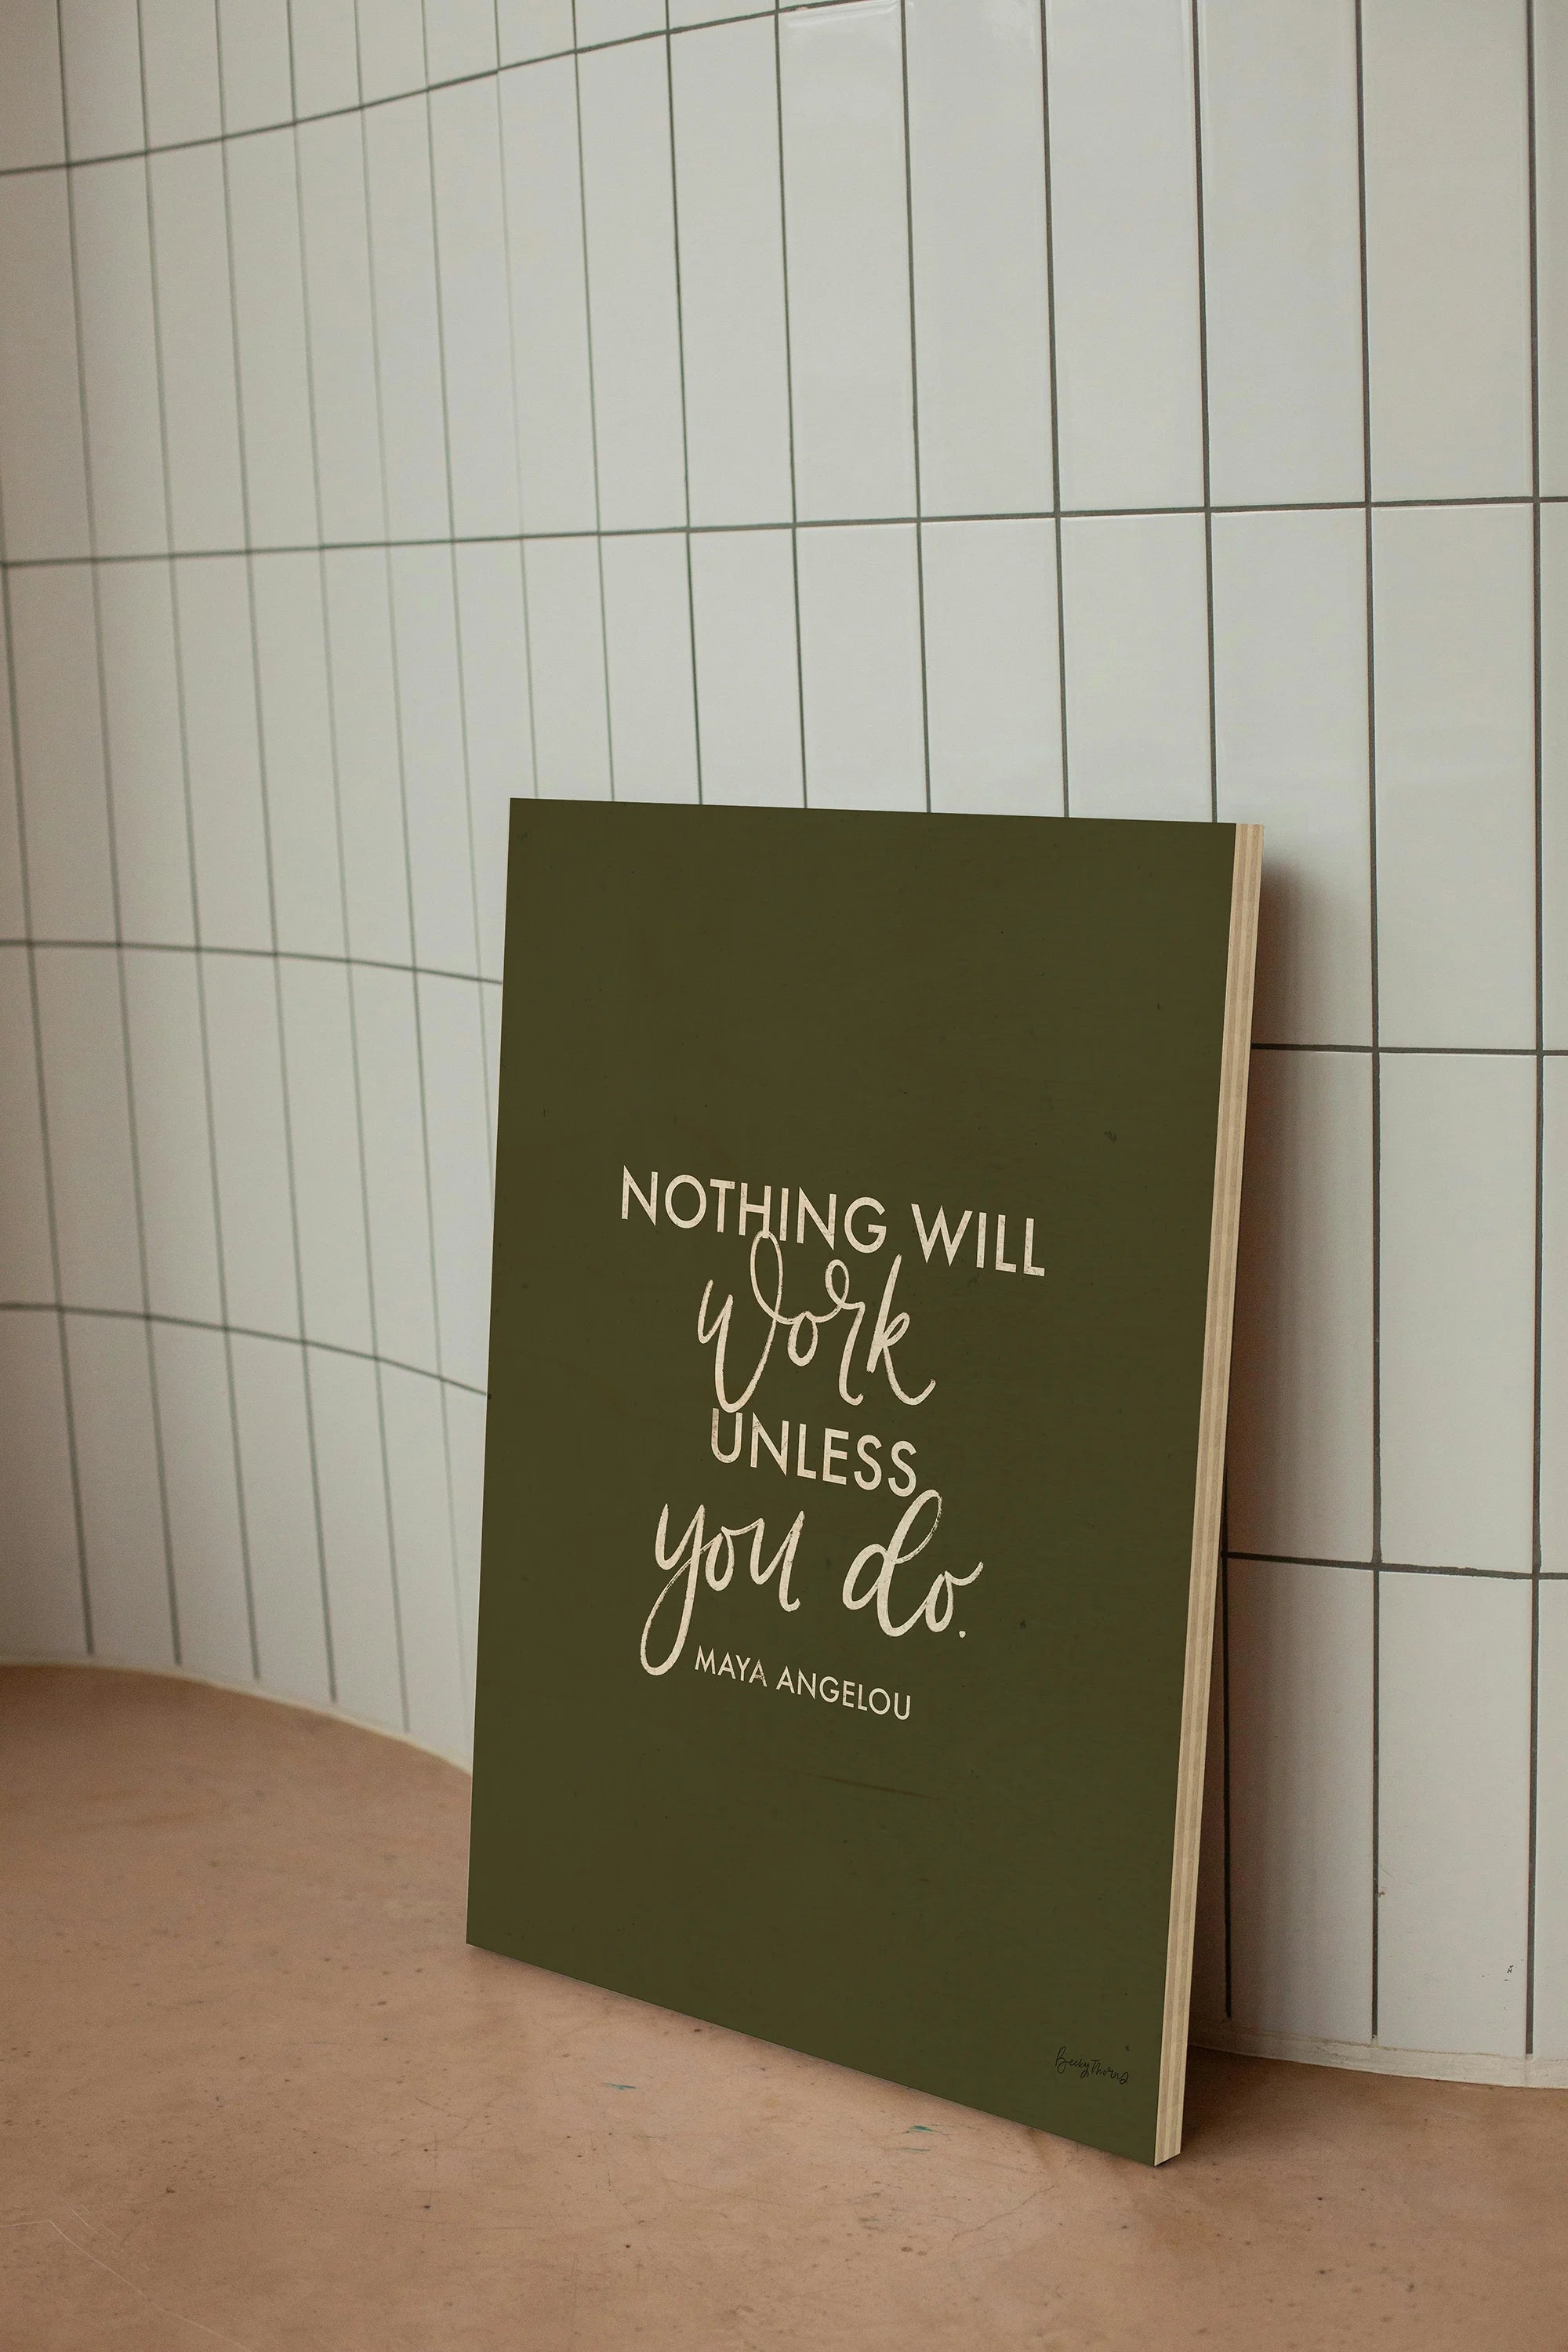 NOTHING WILL
work
UNLESS
you do.
MAYA ANGELOU
Becky Thorns